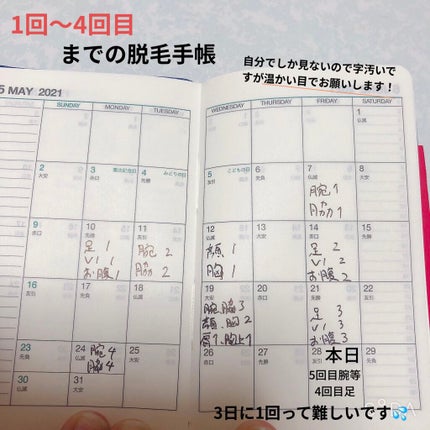 1回〜4回目
までの脱毛手帳
自分でしか見ないので字汚いで
すが温かい目でお願いします！
5 MAY 2021
SUNDAY MONDAY TUESDAY WEDNESDAY THURSDAY FRIDAY SATURDAY
1
仏滅
2 大安
3 赤口 憲法記念日
4 先勝 みどりの日
5 友引 こどもの日
6 先負
7 仏滅
腕 1
脇 1
8 大安
9 赤口
10 先勝
足 1
V I 1
お腹 1
11 友引
腕 2
脇 2
12 仏滅
顔 1
胸 1
13 大安
14 赤口
足 2
V I 2
お腹 2
15 先勝
16 友引
17 先負
18 仏滅
19 大安
腕、脇 3
顔、胸 2
20 赤口
21 先勝
足 3
V I 3
お腹 3
22 友引
23 先負
24 仏滅
腕 4
脇 4
25 大安
26 赤口
27 先勝
28 友引
29 先負
30 仏滅
31 大安
本日
5回目腕等
4回目足
3日に1回って難しいです💦